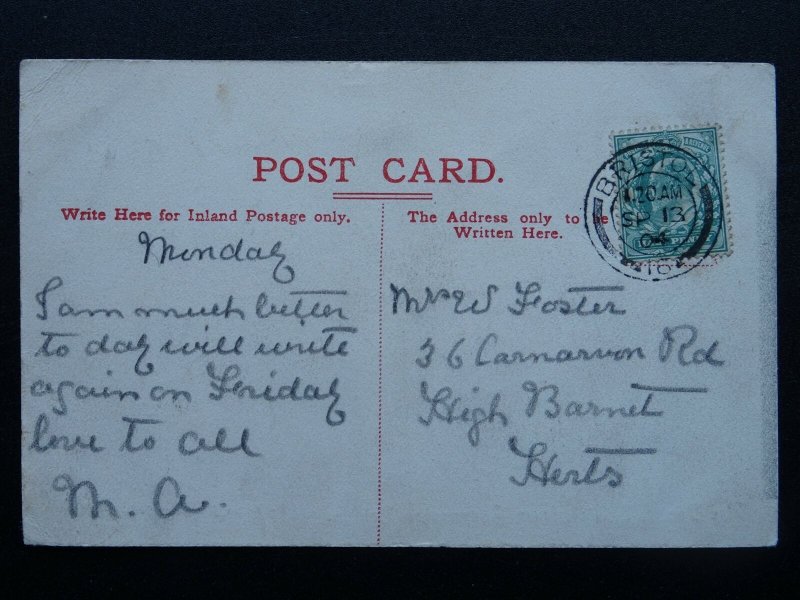 POST CARD.
Write Here for Inland Postage only.
The Address only to be
Written Here.
BRISTOL
1.20 AM
SP 13
04
16
Monday
I am much better
to day will write
again on Friday
love to all
M. A.
Mrs W Foster
36 Carnarvon Rd
High Barnet
Herts